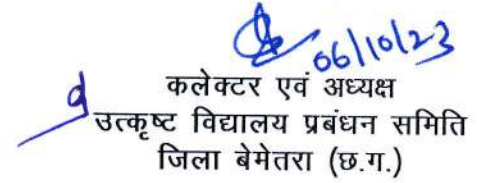 06/10/23
कलेक्टर एवं अध्यक्ष
उत्कृष्ट विद्यालय प्रबंधन समिति
जिला बेमेतरा (छ.ग.)